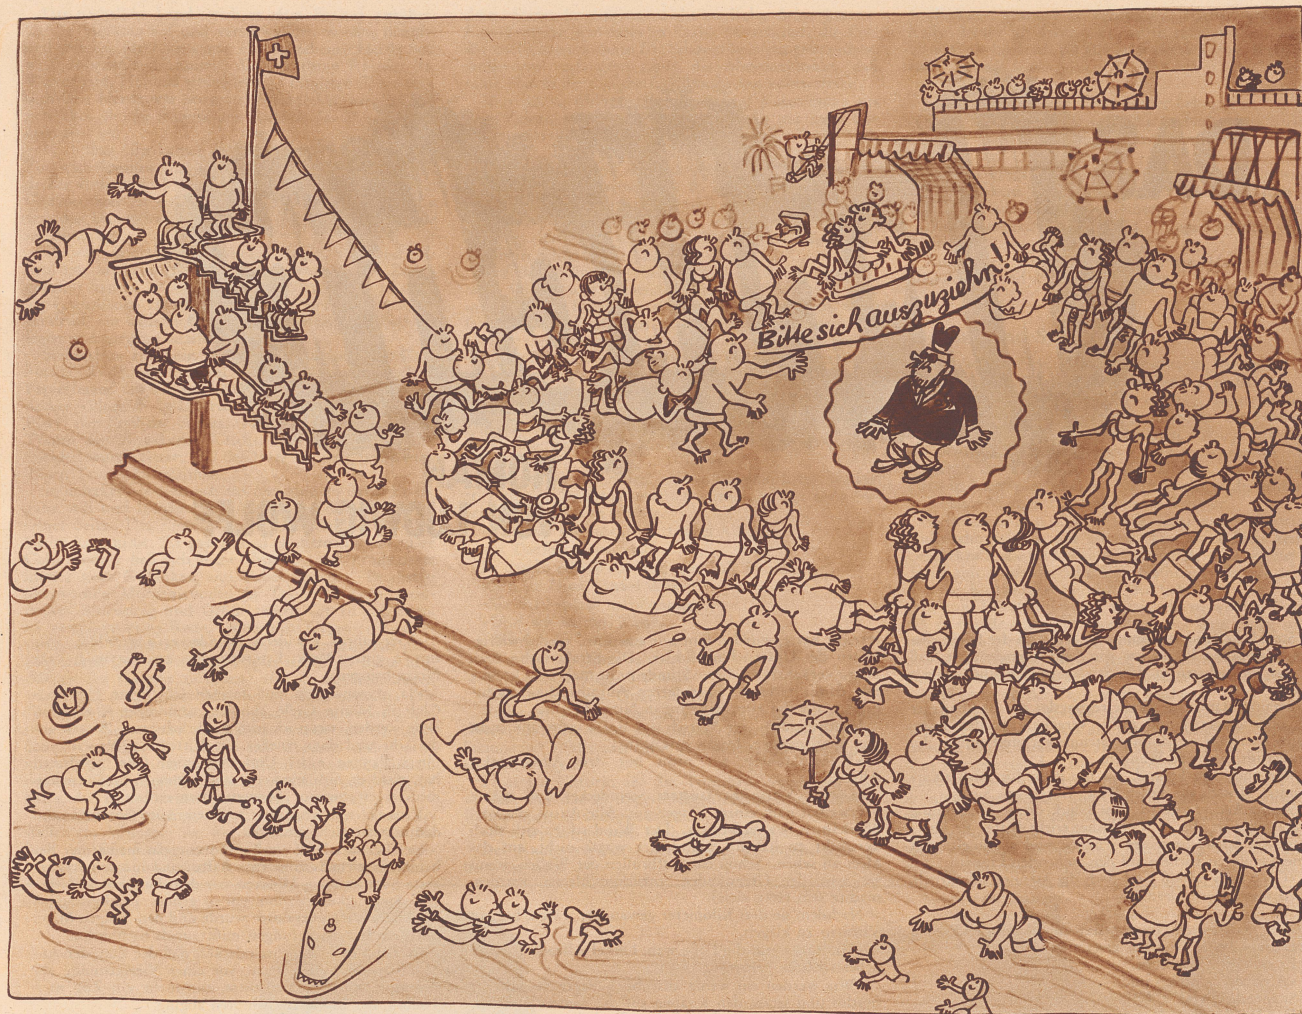 Bitte sich auszuziehn